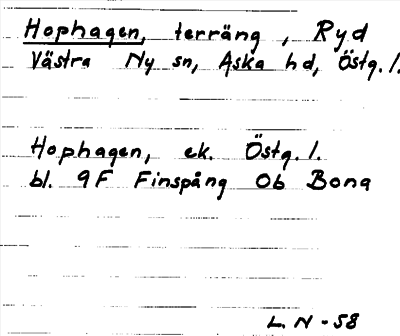 Hophagen, terräng, Ryd
Västra Ny sn, Aska hd, Östg. l.
Hophagen, ek. Östg. l.
bl. 9F Finspång 0b Bona
L. N - 58